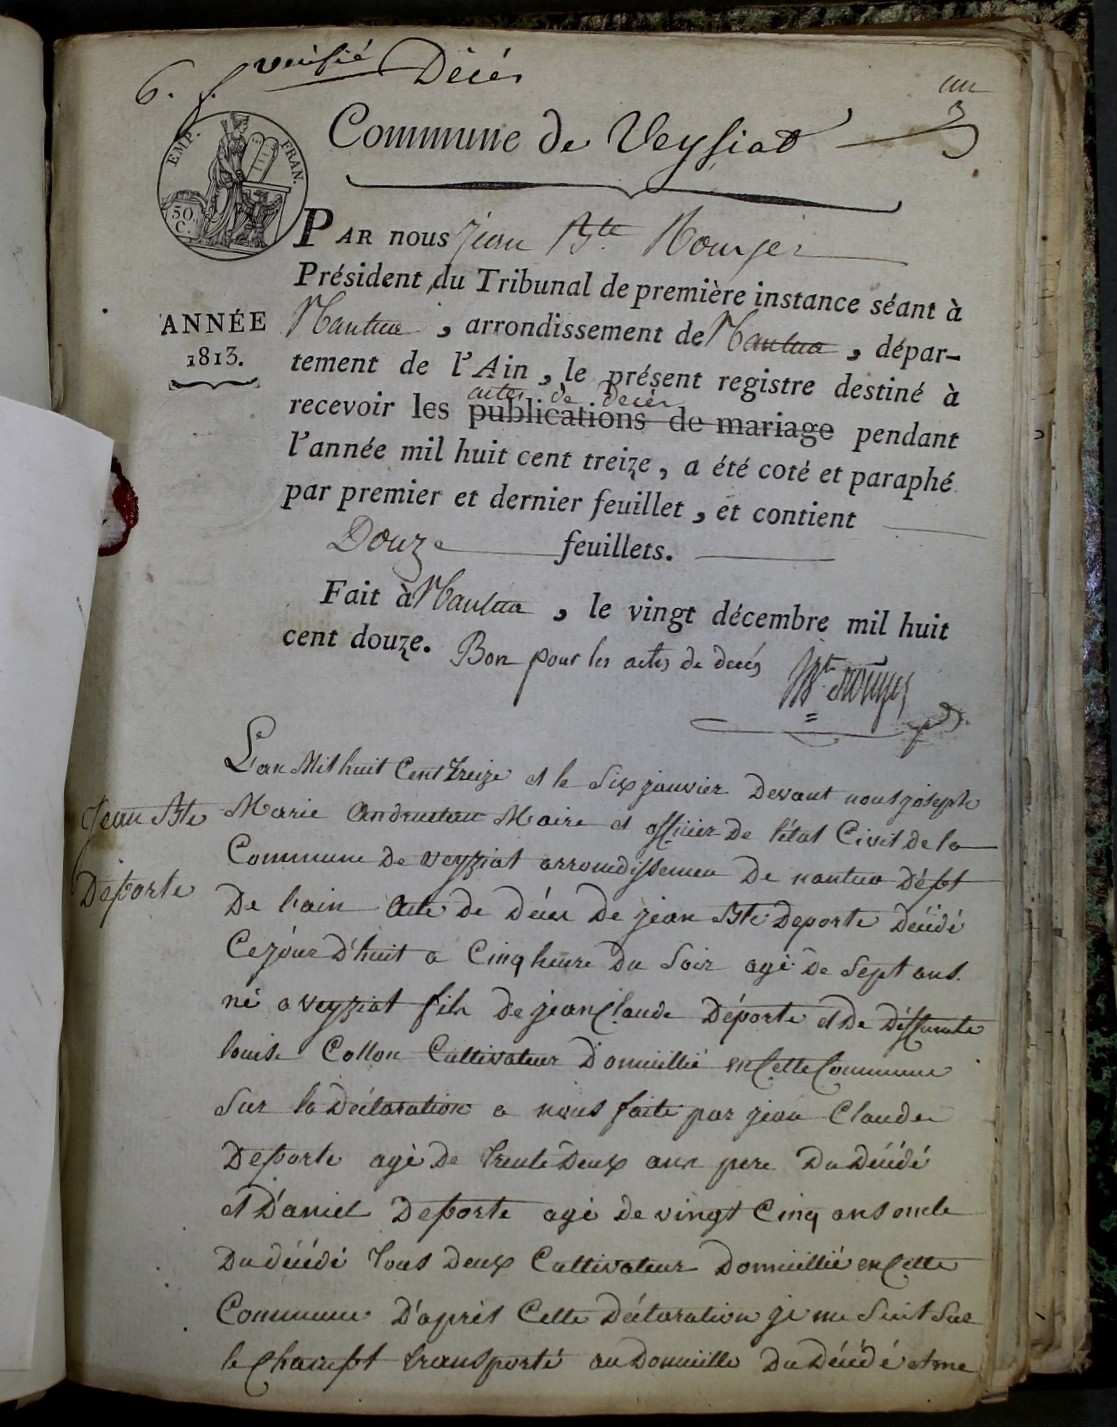 6. verifié Décès
un
Commune de Veysiat
EMP. FRAN.
50 C.
PAR nous Jean Bte
Président du Tribunal de première instance séant à
Nantua, arrondissement de Nantua, dépar-
ANNÉE
1813.
tement de l'Ain, le présent registre destiné à
actes de décès
recevoir les publications de mariage pendant
l'année mil huit cent treize, a été coté et paraphé
par premier et dernier feuillet, et contient
Douze feuillets.
Fait à Nantua, le vingt décembre mil huit
cent douze. Bon pour les actes de décés
L'an Mil huit Cent treize et le Six janvier Devant nous joseph
Jean Bte
Marie Maire et officier De l'état Civil de la
Commune De veyziat arrondissemen De nantua Dépt
Deporte
De l'ain Acte De Décès De jean Bte Deporte Décédé
Ce jour D'huit a Cinq heure Du Soir agé De Sept ans
né a veyziat fils De jean Claude Déporte et De Déffunte
louise Collon Cultivateur Domicillié en Cette Commune
Sur la Déclaration a nous faite par jean Claude
Deporte agé De trente Deux ans pere Du Décédé
et Daniel Deporte agé de vingt Cinq ans oncle
Du décédé tous Deux Cultivateur Domicillié en Cette
Commune D'aprés Cette Déclaration je me Suit Sur
le Champt transporté au Domicille Du Décédé et me